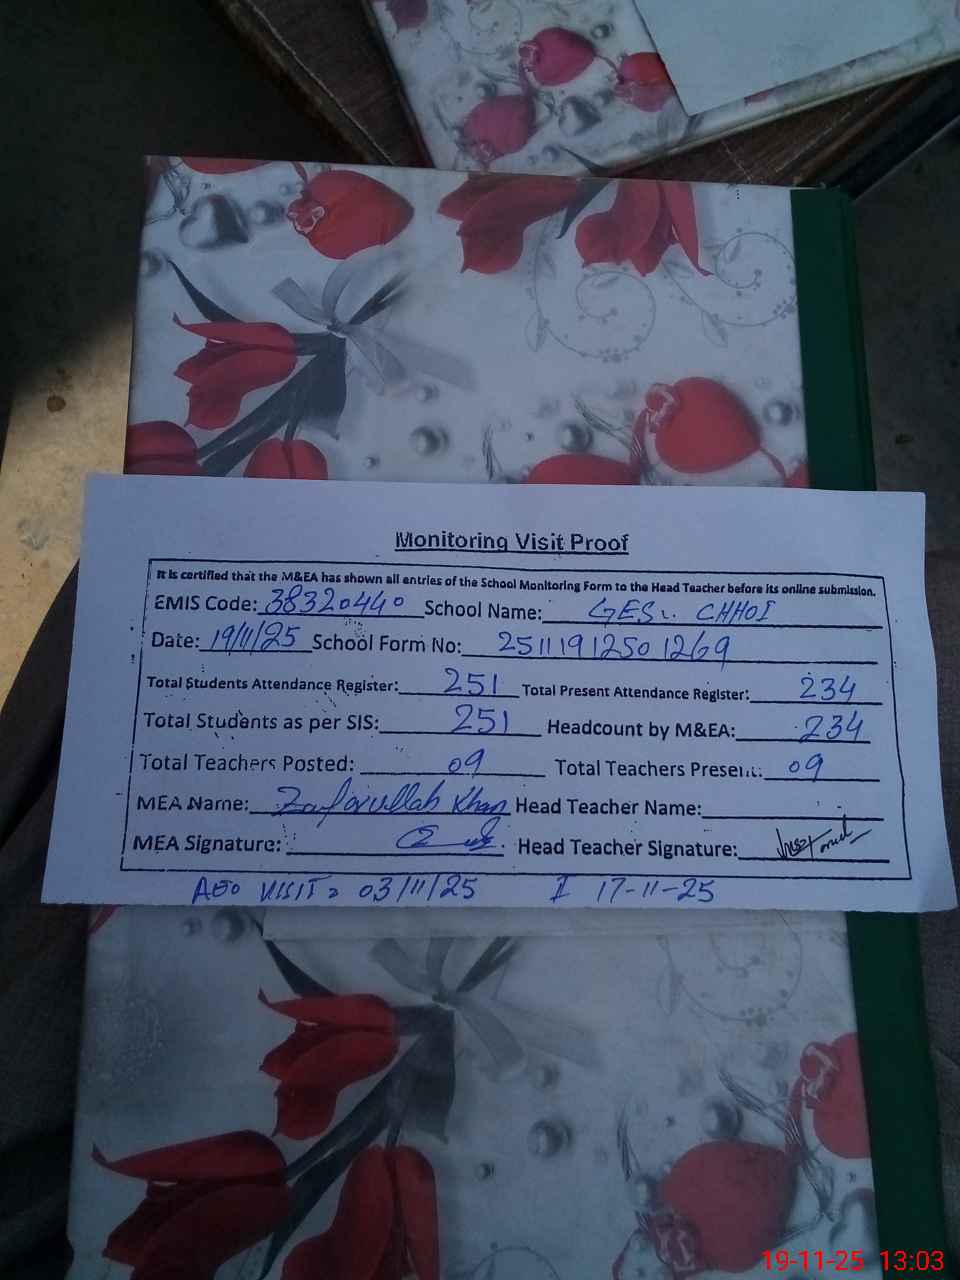 Monitoring Visit Proof
It is certified that the M&EA has shown all entries of the School Monitoring Form to the Head Teacher before its online submission.
EMIS Code: 38320440 School Name: GES CHHOI
Date: 19/11/25 School Form No: 25111912501269
Total Students Attendance Register: 251 Total Present Attendance Register: 234
Total Students as per SIS: 251 Headcount by M&EA: 234
Total Teachers Posted: 09 Total Teachers Present: 09
MEA Name: Zafarullah Khan Head Teacher Name:
MEA Signature: Head Teacher Signature:
AEO VISIT 03/11/25 II 17-11-25
19-11-25 13:03